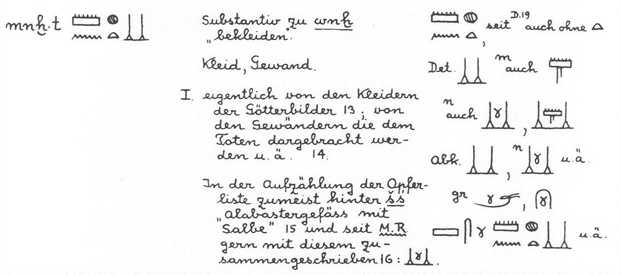 mnḫ·t Substantiv zu wnḫ seit D.19 auch ohne
„bekleiden".
Kleid, Gewand. Det. m auch
I. eigentlich von den Kleidern
der Götterbilder 13; von n auch ,
den Gewändern die dem
Toten dargebracht wer-
den u. ä. 14. Abk. , n u. ä.
In der Aufzählung der Opfer-
liste zumeist hinter šś gr ,
„Alabastergefäss mit
Salbe" 15 und seit M.R u. ä.
gern mit diesem zu-
sammengeschrieben 16: